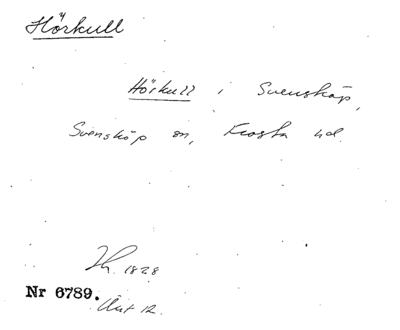 Hörkull
Hörkull i Svensköp,
Svensköp sn, Frosta hd.
1828
Nr 6789.
12.